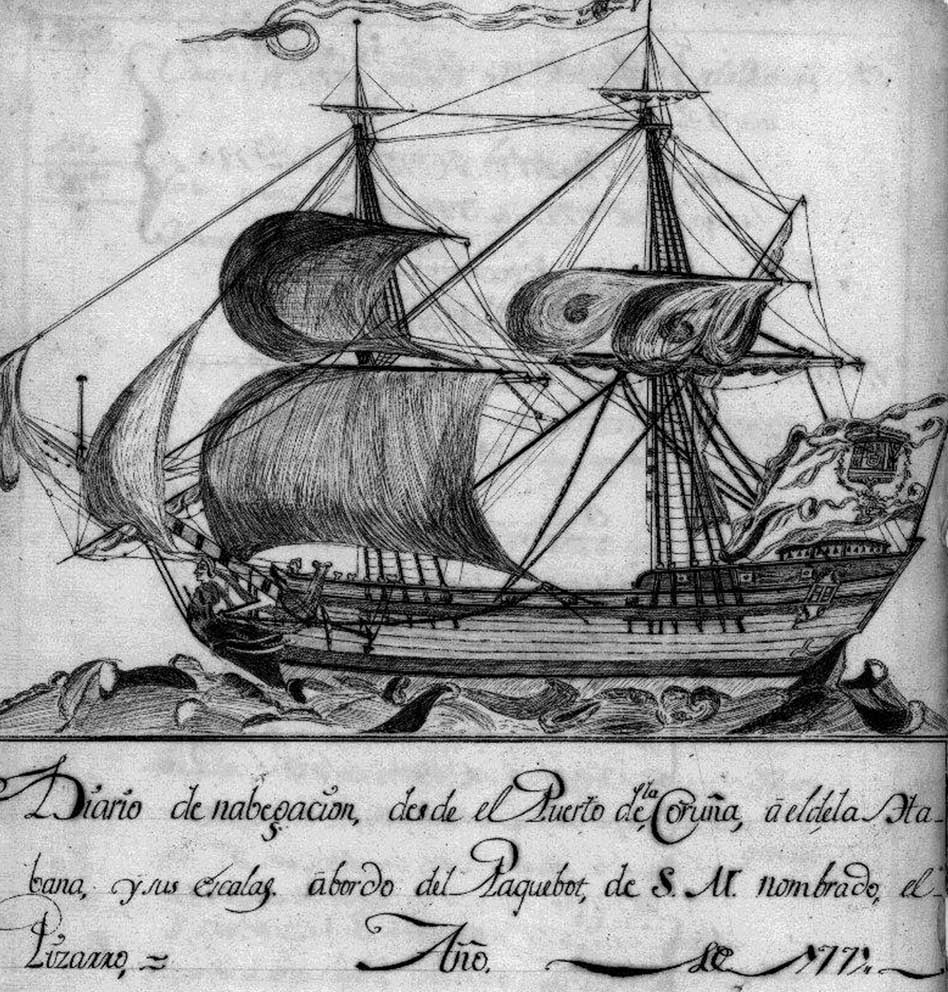 Diario de nabegacion, desde el Puerto de la Coruña, á el de la Ha-
bana, y sus escalas. abordo del Paquebot, de S. M. nombrado, el
Pizarro, Año. de 177